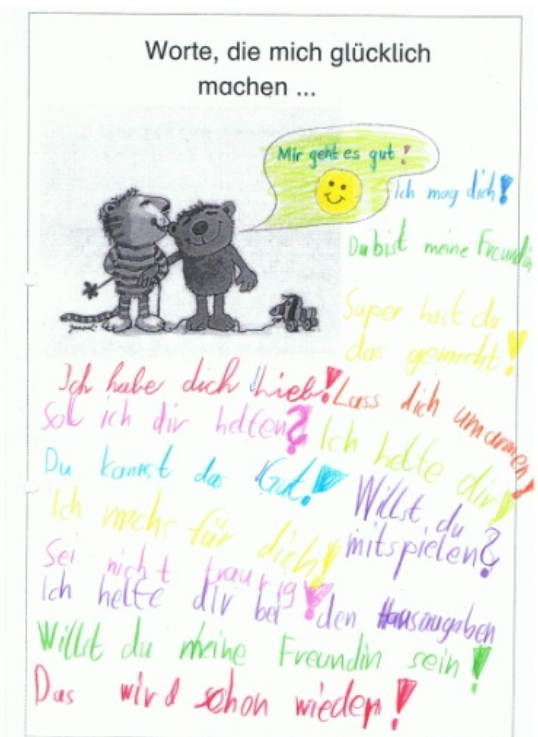 Worte, die mich glücklich
machen ...
Mir geht es gut!
Ich mag dich!
Du bist meine Freundin
Super hast du
das gemacht!
Ich habe dich Lieb!
Lass dich umarmen!
Soll ich dir helfen?
Ich helfe dir!
Du kannst das Gut!
Willst du
mitspielen?
Ich machs für dich!
Sei nicht traurig!
Ich helfe dir bei den Hausaugaben
Willst du meine Freundin sein!
Das wird schon wieder!